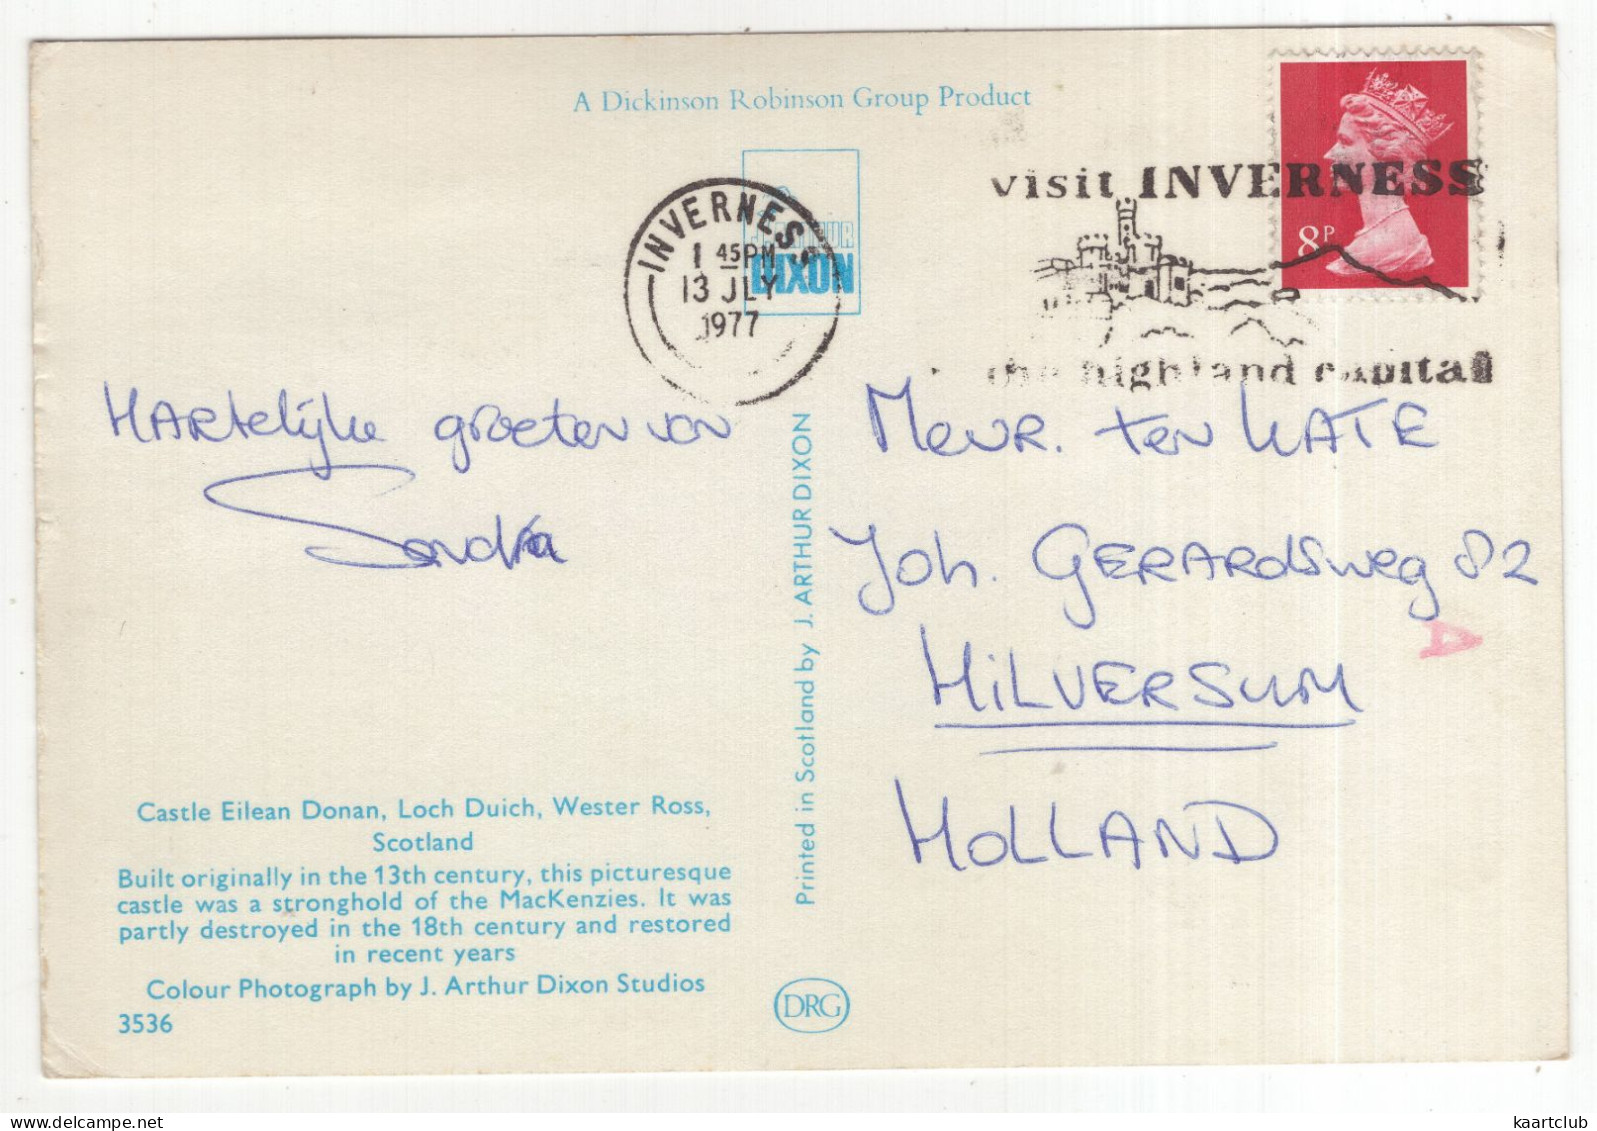 A Dickinson Robinson Group Product
visit INVERNESS
the highland capital
8P
INVERNESS
1 45 PM
13 JLY
1977
J. ARTHUR
DIXON
HARtelijke groeten van
Sandra
Mevr. ten KATE
Joh. GERARdsweg 82
HiLVERSUM
HOLLAND
Printed in Scotland by J. ARTHUR DIXON
Castle Eilean Donan, Loch Duich, Wester Ross,
Scotland
Built originally in the 13th century, this picturesque
castle was a stronghold of the MacKenzies. It was
partly destroyed in the 18th century and restored
in recent years
Colour Photograph by J. Arthur Dixon Studios
3536
DRG
kaartclub